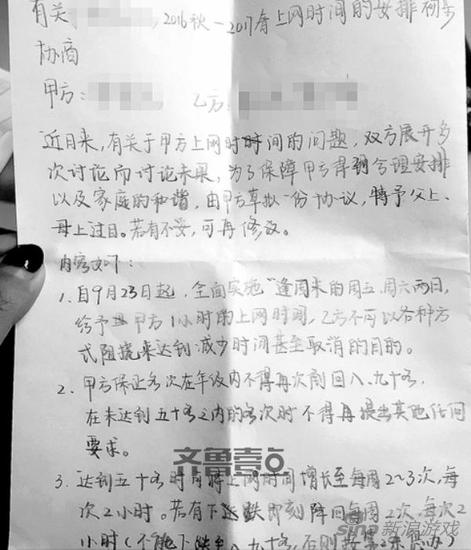 有关 2016秋—2017春上网时间的安排初步
协商
甲方: 乙方:
近日来,有关于甲方上网时时间的问题,双方展开多
次讨论而讨论未果,为了保障甲方得到合理安排
以及家庭的和谐,由甲方草拟一份协议,特予父上、
母上过目。若有不妥,可再修议。
内容如下:
1.自9月23日起,全面实施“逢周末的周五、周六两日,
给予甲方1小时的上网时间,乙方不可以各种方
式阻挠来达到减少时间甚至取消的目的。
2.甲方保证名次在年级内不得再次削回八、九十名,
在未达到五十名之内的名次时不得再提出其他任何
要求。
齐鲁壹点
3.达到五十名时可将上网时间增长至每周2~3次,每
次2小时。若有下跌即刻降回每周2次,每次2
小时(不能下跌至八、九十名,否则
sina新浪游戏